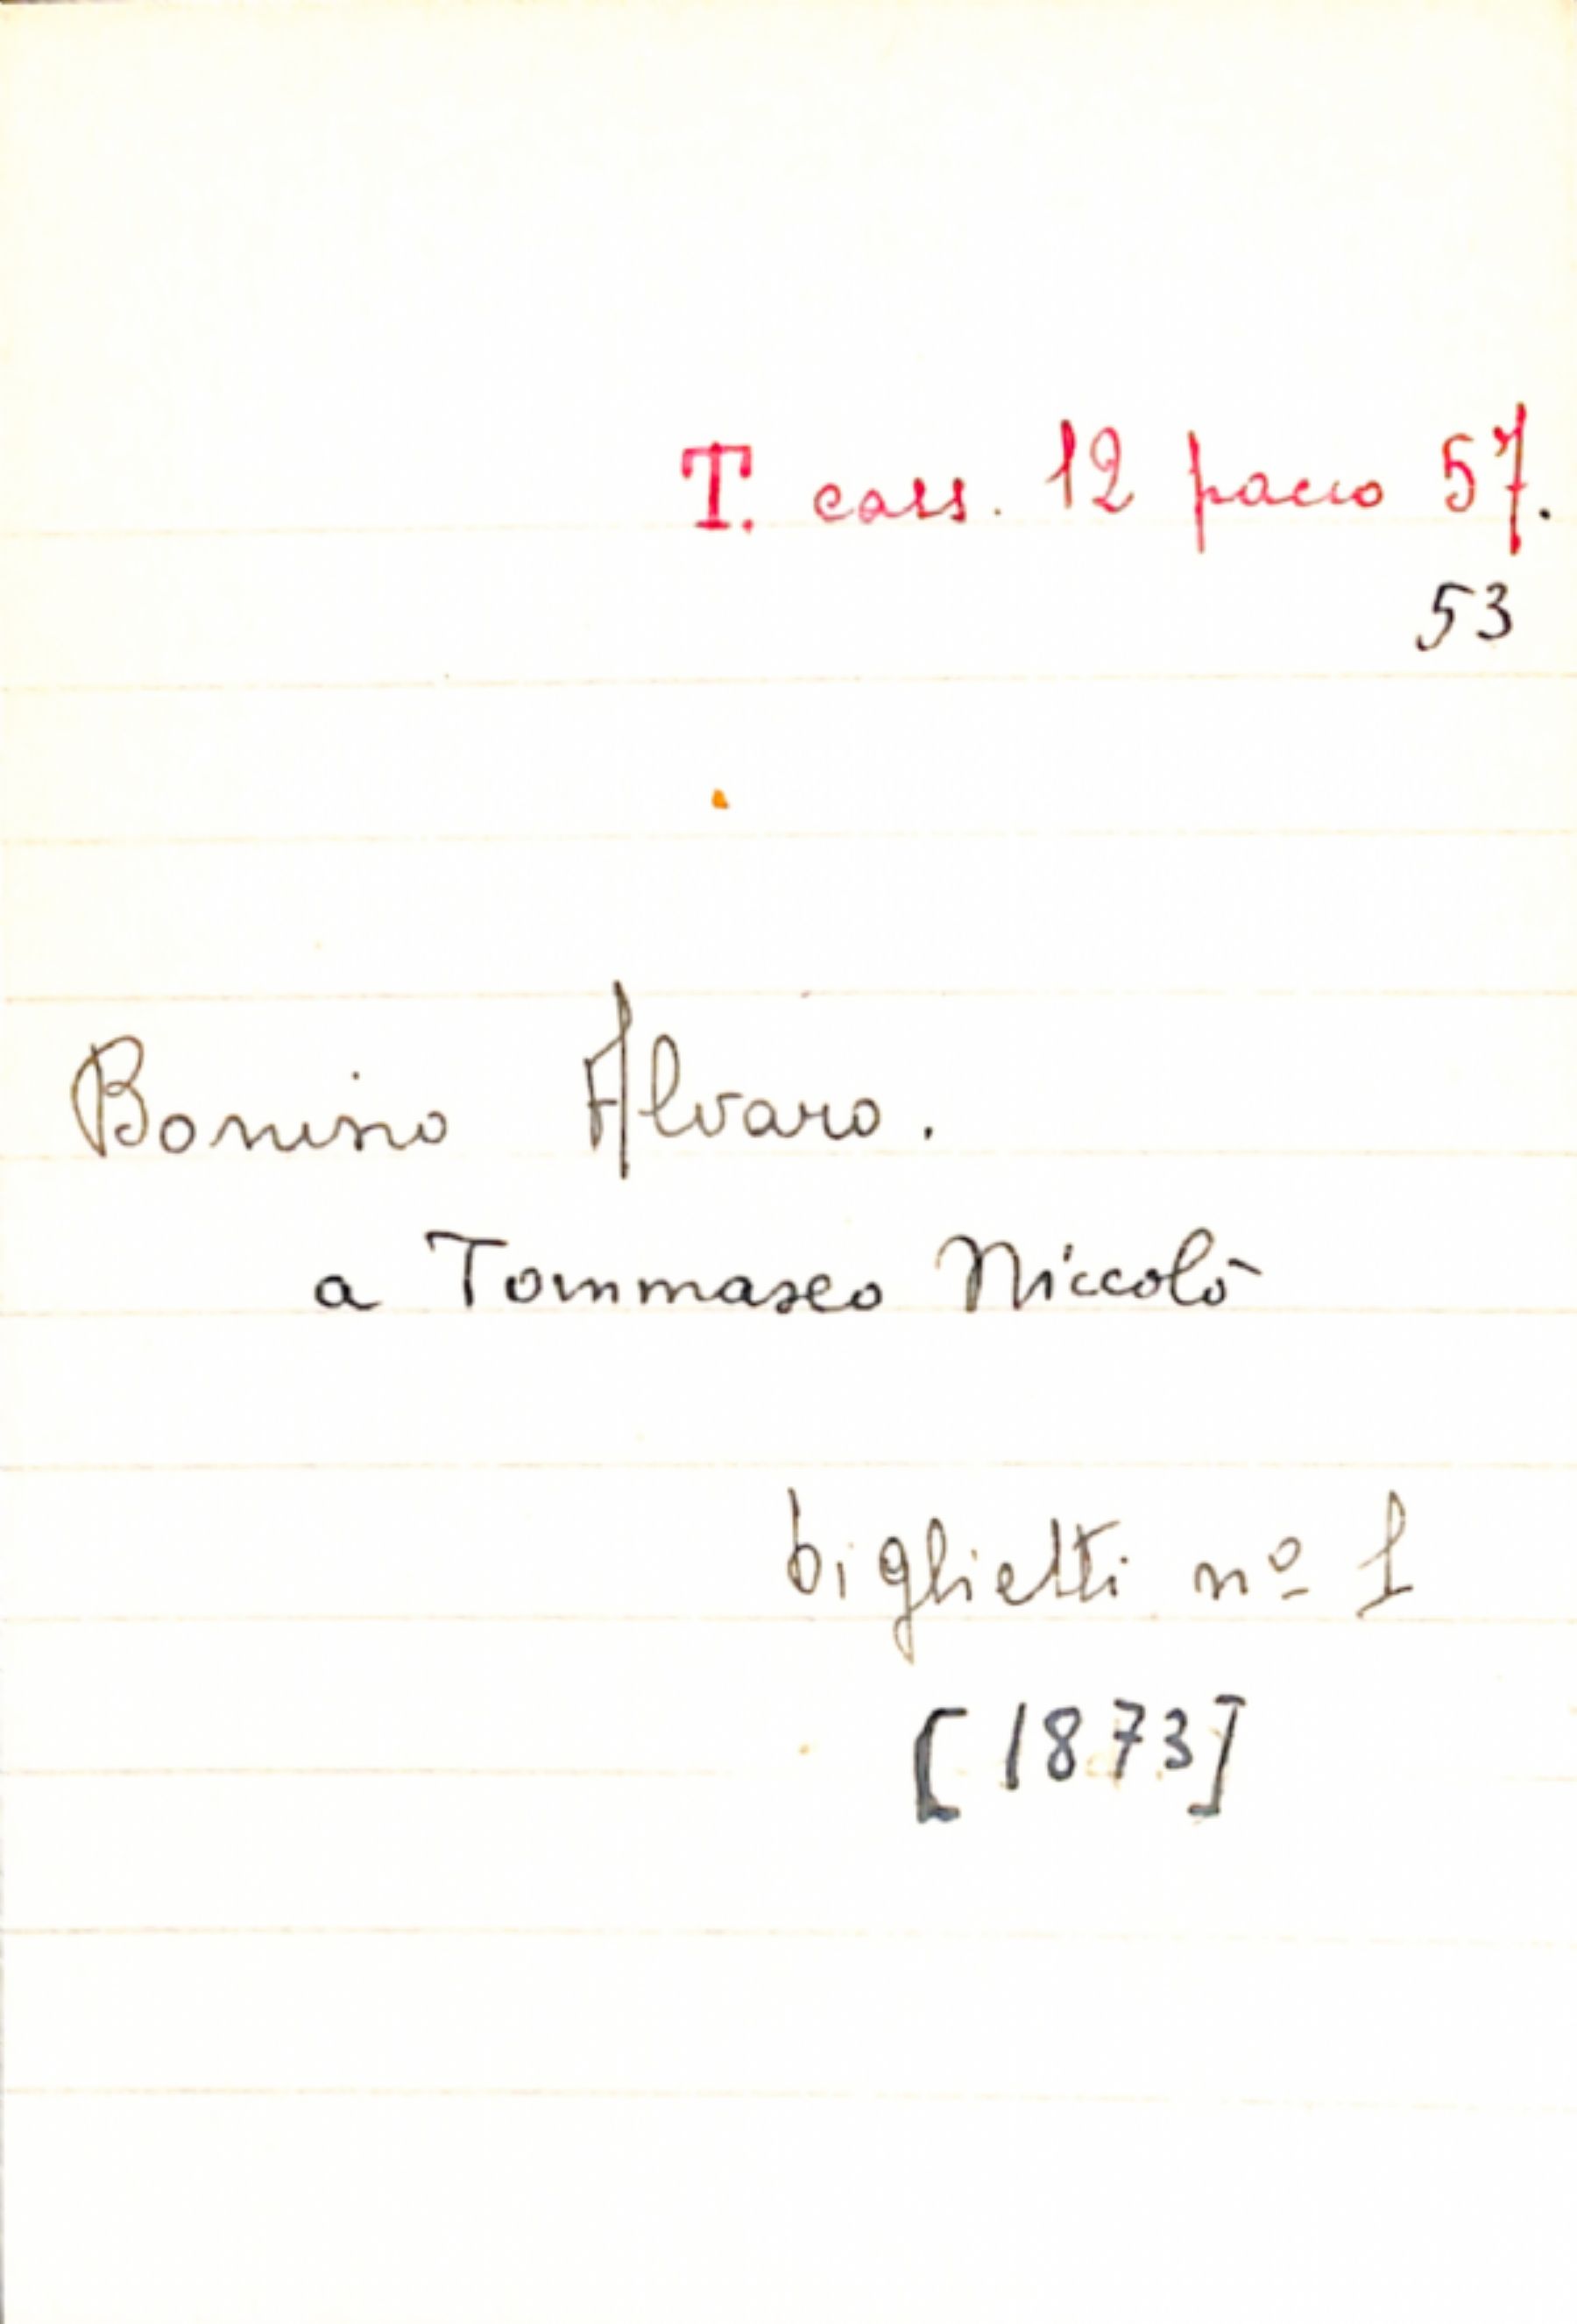 T. cass. 12 pacco 57.
53
Bonino Alvaro.
a Tommaseo Niccolò
biglietti nº 1
[1873]